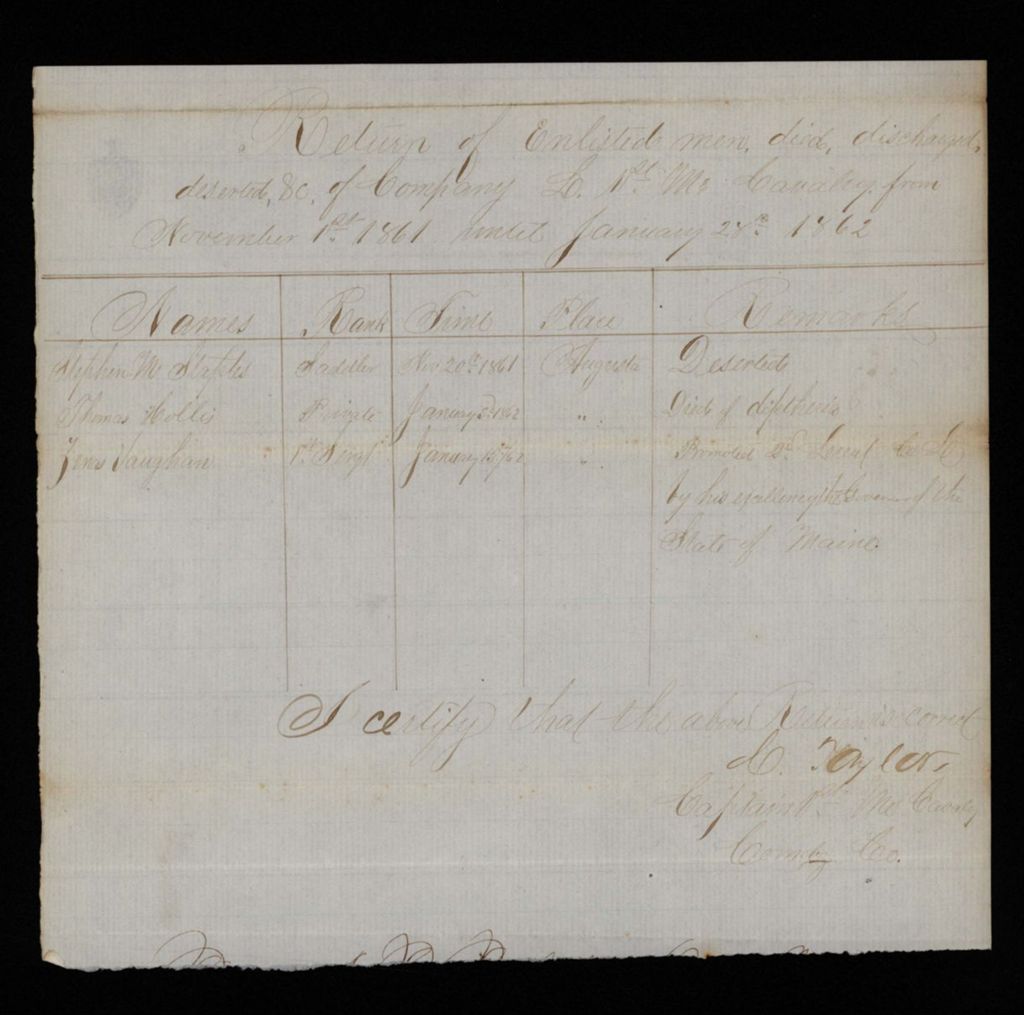 Return of Enlisted men, died, discharged,
deserted, &c, of Company L. 1st Me Cavalry, from
November 1st 1861 until January 28th 1862
Names Rank Time Place Remarks
Stephen M Staples Saddler Nov 20th 1861 Augusta Deserted
Thomas Hollis Private January 1862 " Died of diptheria
Vaughan 1st Sergt January 15th/62 " Promoted 2d Lieut Co
by his excellency the Governor of the
State of Maine.
I certify that the above Return is correct
Taylor,
Captain 1st Me Cavalry
Comdg Co.